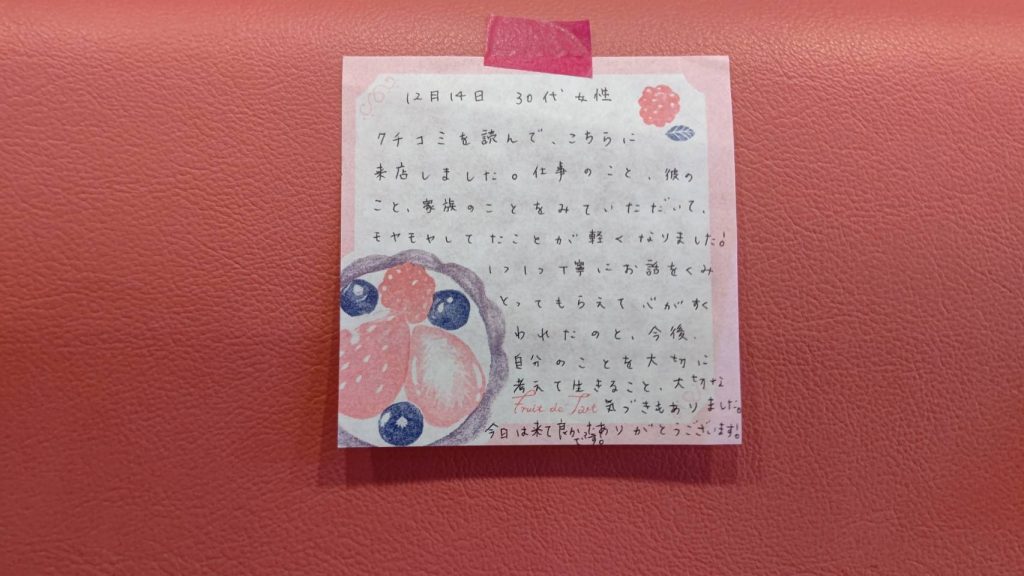 12月14日 30代女性
クチコミを読んで、こちらに
来店しました。仕事のこと、彼の
こと、家族のことをみていただいて、
モヤモヤしてたことが軽くなりました!
1つ1つ丁寧にお話をくみ
とってもらえて心がすく
われたのと、今後、
自分のことを大切に
考えて生きること、大切な
Fruit de Tart 気づきもありました。
今日は来て良かったです。ありがとうございます!